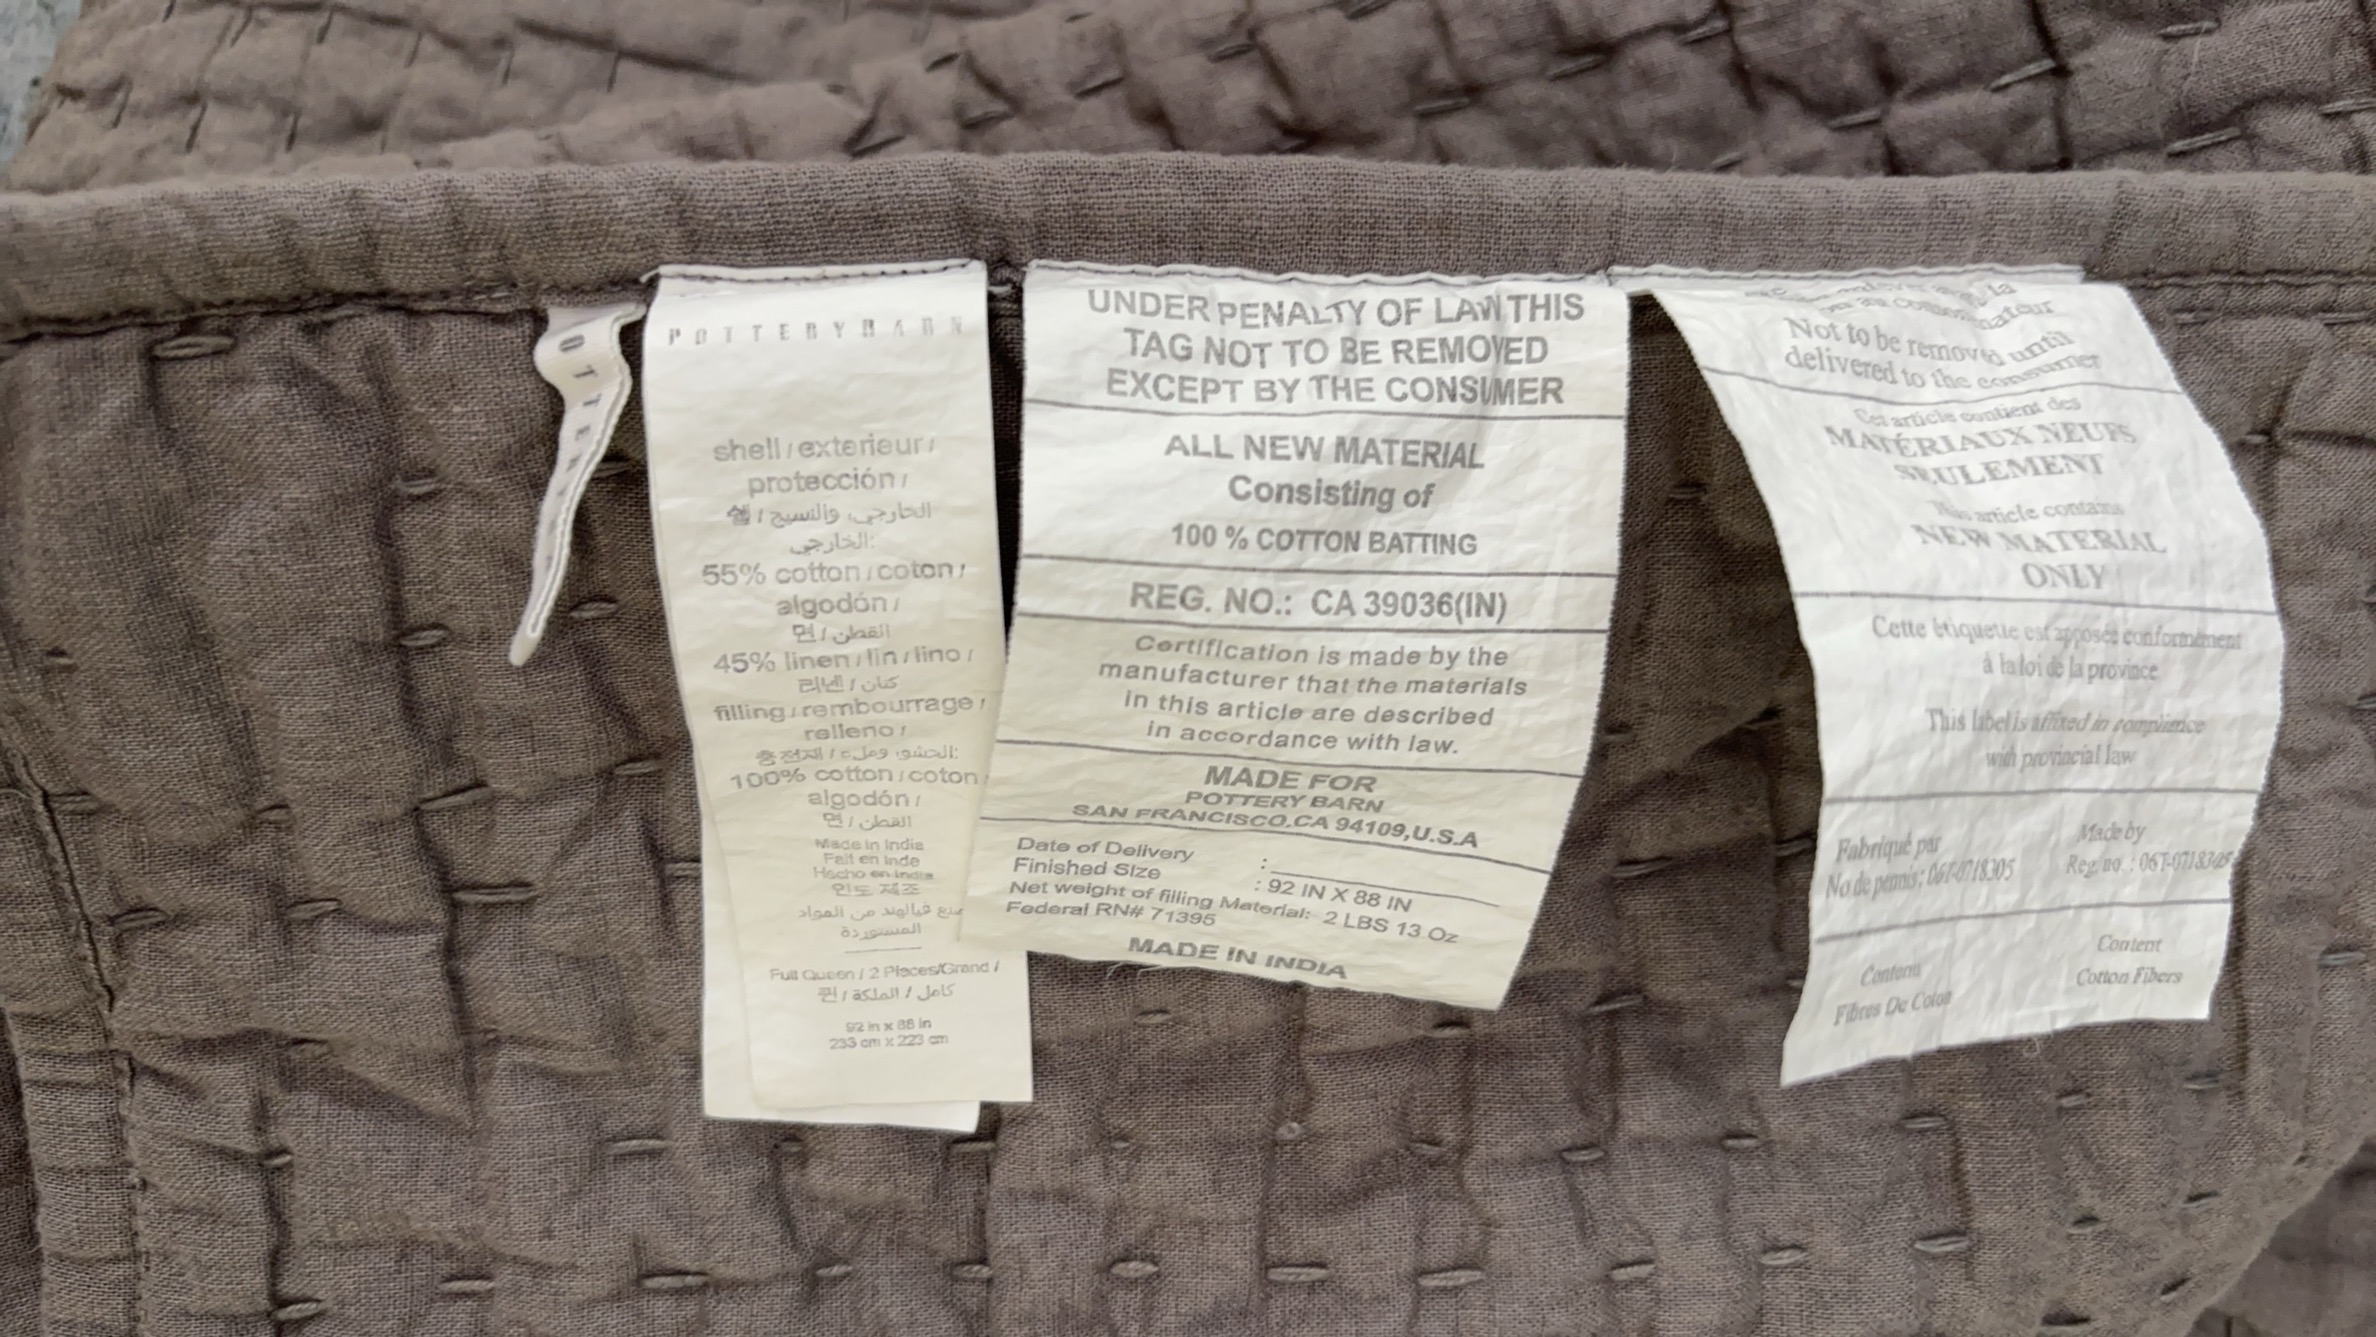 OTTERY
POTTERYBARN
shell / exterieur /
protección /
쉘 / الخارجي، والنسيج
الخارجي:
55% cotton / coton /
algodón /
면 / القطن
45% linen / lin / lino /
리넨 / كتان
filling / rembourrage /
relleno /
충전재 / الحشو، وملء:
100% cotton / coton
algodón /
면 / القطن
Made in India
Fait en Inde
Hecho en India
인도 제조
صنع فيالهند من المواد
المستوردة
Full Queen / 2 Places/Grand /
퀸 / كامل / الملكة
92 in x 88 in
233 cm x 223 cm
UNDER PENALTY OF LAW THIS
TAG NOT TO BE REMOVED
EXCEPT BY THE CONSUMER
ALL NEW MATERIAL
Consisting of
100 % COTTON BATTING
REG. NO.: CA 39036(IN)
Certification is made by the
manufacturer that the materials
in this article are described
in accordance with law.
MADE FOR
POTTERY BARN
SAN FRANCISCO,CA 94109,U.S.A
Date of Delivery :
Finished Size : 92 IN X 88 IN
Net weight of filling Material: 2 LBS 13 Oz
Federal RN# 71395
MADE IN INDIA
la
Not to be removed until
delivered to the consumer
Cet article contient des
MATÉRIAUX NEUFS
SEULEMENT
This article contains
NEW MATERIAL
ONLY
Cette étiquette est apposée conformément
à la loi de la province
This label is affixed in compliance
with provincial law
Fabriqué par
No de permis: 06T-0718305
Made by
Reg. no. : 06T-0718305
Contenu
Fibres De Coton
Content
Cotton Fibers